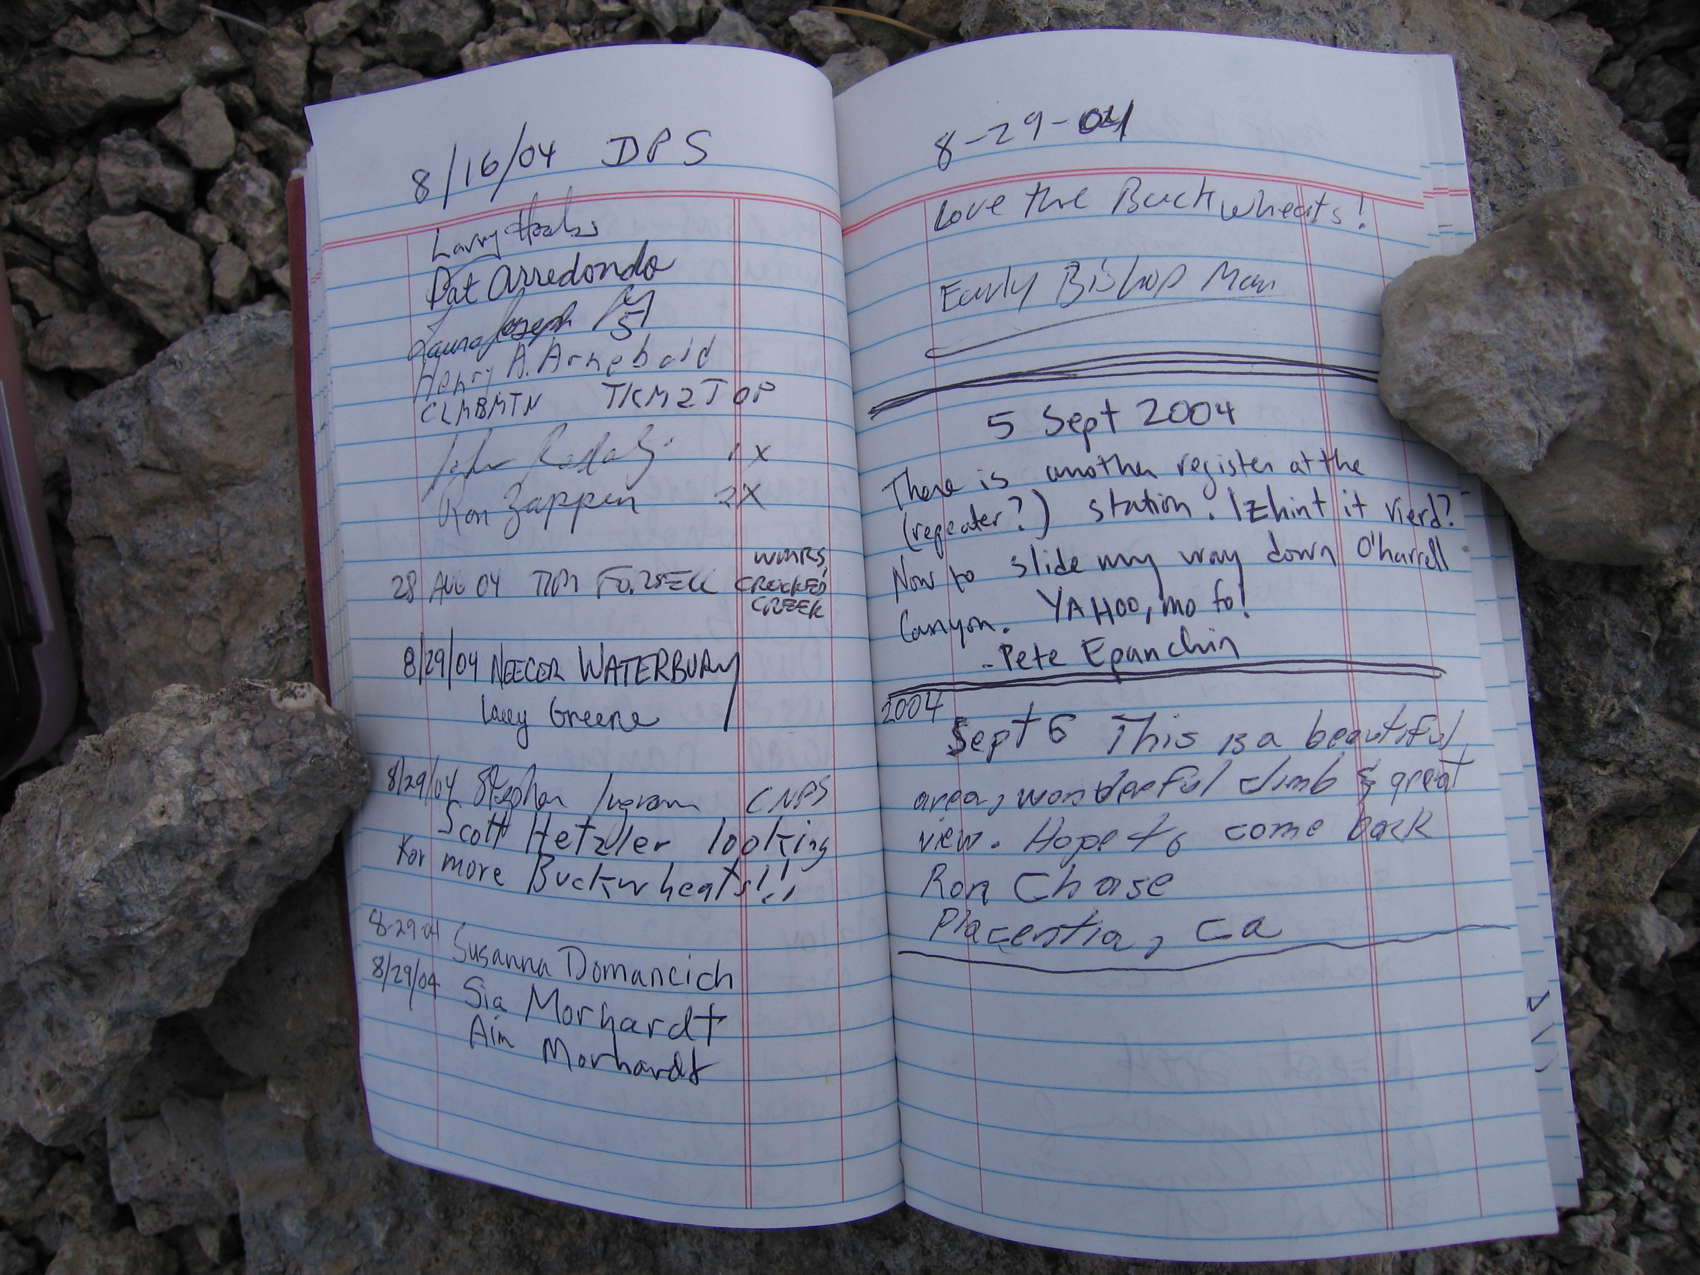 8/16/04 DPS
Larry
Pat Arredondo
Laura Joseph
Henry A. Arnebold
CLMBMTN TKM2TOP
John 1X
Ron Zappen 2X
28 AUG 04 TIM WMRS,
CROOKED
CREEK
8/29/04 NEECER WATERBURY
Lacey Greene
8/29/04 Stephen Ingram CNPS
Scott Hetzler looking
for more Buckwheats!!!
8-29 04 Susanna Domancich
8/29/04 Sia Morhardt
Aim Morhardt
8-29-04
Love the Buckwheats!
Early Bishop Man
5 Sept 2004
There is another register at the
(repeater?) station. Izhint it vierd?
Now to slide my way down O'harrell
Canyon. YAHOO, mo fo!
- Pete Epanchin
2004
Sept 6 This is a beautiful
area, wonderful climb & great
view. Hope to come back
Ron Chase
Placentia, Ca